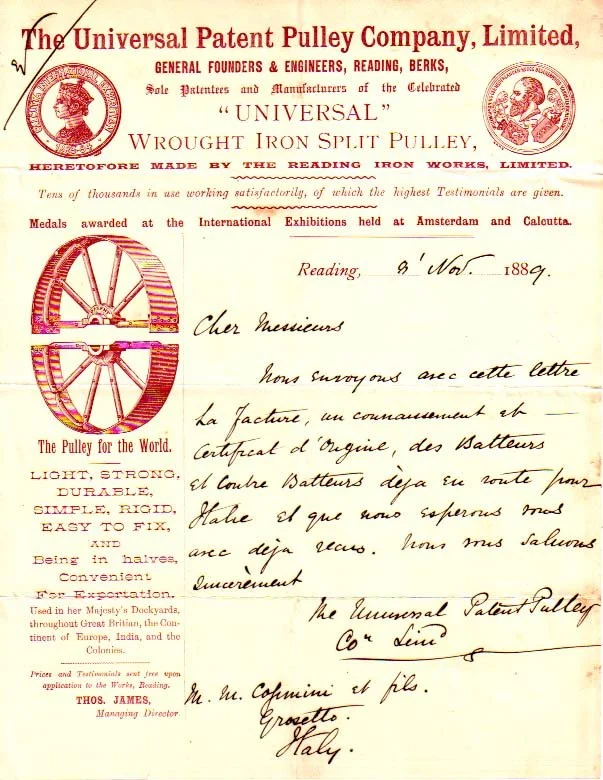 The Universal Patent Pulley Company, Limited,
GENERAL FOUNDERS & ENGINEERS, READING, BERKS,
Sole Patentees and Manufacturers of the Celebrated
"UNIVERSAL"
WROUGHT IRON SPLIT PULLEY,
HERETOFORE MADE BY THE READING IRON WORKS, LIMITED.
Tens of thousands in use working satisfactorily, of which the highest Testimonials are given.
Medals awarded at the International Exhibitions held at Amsterdam and Calcutta.
Reading, 8' Nov. 1889.
Cher Messieurs
Nous envoyons avec cette lettre
la facture, un connaissement et
Certificat d'Origine, des Batteurs
et Contre Batteurs dèja en route pour
Italie et que nous esperons vous
avec déja recus. Nous vous saluons
sincèrement
The Universal Patent Pulley
Coy Limd
M. M. et fils.
Grosetto.
Italy.
The Pulley for the World.
LIGHT, STRONG,
DURABLE,
SIMPLE, RIGID,
EASY TO FIX,
AND
Being in halves,
Convenient
For Exportation.
Used in her Majesty's Dockyards,
throughout Great Britian, the Con-
tinent of Europe, India, and the
Colonies.
Prices and Testimonials sent free upon
application to the Works, Reading.
THOS. JAMES,
Managing Director.